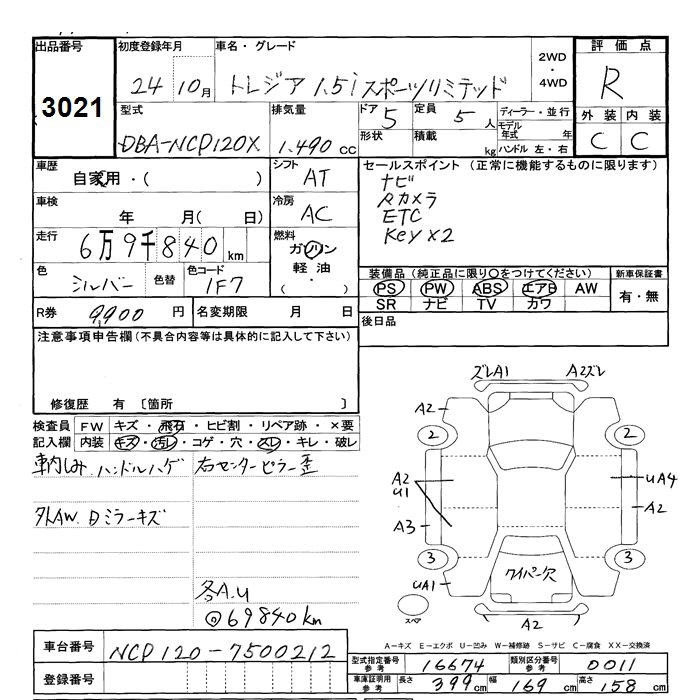 出品番号
3021
初度登録年月
24 10月
車名・グレード
トレジア 1.5i スポーツリミテッド
2WD
・
4WD
評価点
R
型式
DBA-NCP120X
排気量
1.490 CC
ドア 5
定員 5人
形状
積載 kg
ディーラー・並行
モデル年式 年
ハンドル 左・右
外装 内装
C C
車歴
自家用・( )
シフト
AT
車検
年 月( 日)
冷房
AC
走行
6万9千840km
燃料
ガソリン
軽油
( ・ )
色
シルバー
色替
色コード
1F7
セールスポイント (正常に機能するものに限ります)
ナビ
Rカメラ
ETC
Key×2
装備品 (純正品に限り○をつけてください)
PS PW ABS エアB AW
SR ナビ TV カワ
新車保証書
有・無
R券 9,900 円
名変期限 月 日
後日品
注意事項申告欄(不具合内容等は具体的に記入して下さい)
修復歴 有 〔箇所 〕
検査員記入欄
FW キズ・飛石・ヒビ割・リペア跡・×要
内装 キズ・汚レ・コゲ・穴・スレ・キレ・破レ
車内しみ ハンドルハゲ
右センターピラー歪
外AW. Dミラーキズ
各A.U
◎69840km
ズレA1
A2ズレ
A2
2
2
A2
U1
UA4
A2
A3
3
3
UA1
ワイパー欠
スペア
A2
車台番号 NCP120-7500212
登録番号
A-キズ E-エクボ U-凹み W-補修跡 S-サビ C-腐食 XX-交換済
型式指定番号参考 16674
類別区分番号参考 0011
車庫証明用参考 長さ 399cm 幅 169cm 高さ 158cm